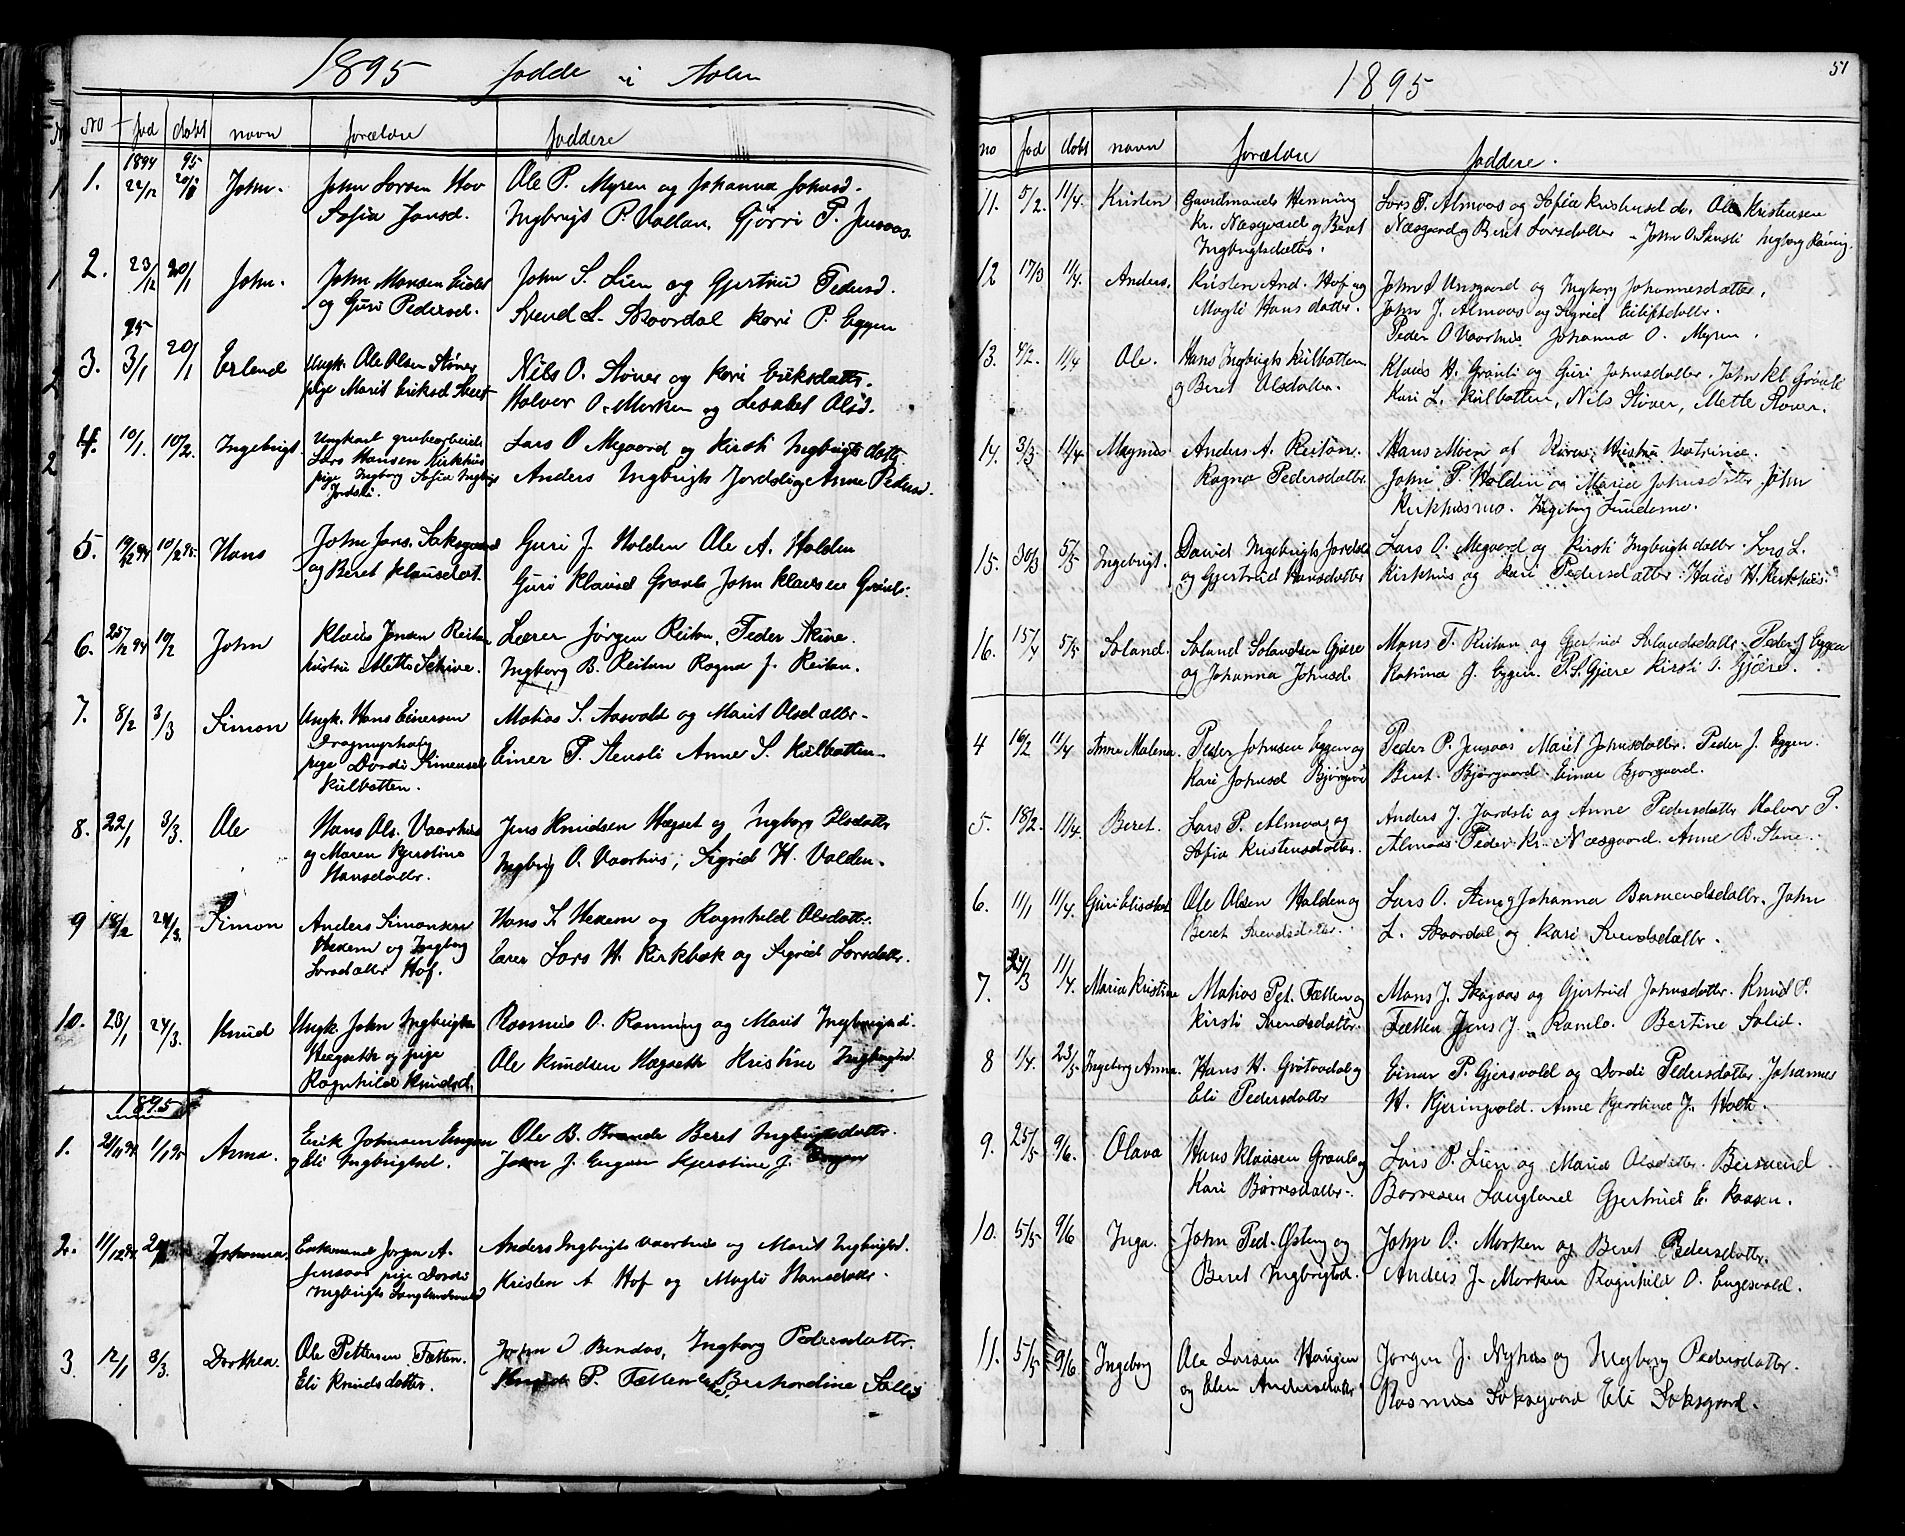 1895 fødde i Aalen
No fød døbt navn forældre faddere
1. 1894 22/12 95 20/1 John. John Larsen Hov Ole P. Myren og Johanna Johnsd.
Sofia Jansd. Ingbrigt P. Vollan, Gjørri P. Jensaas.
2. 23/12 20/1 John. John Monsen Eidet John S. Lien og Gjertrud Pedersd.
og Guri Pedersd. Svend L. Skaardal Kari P. Eggen
95
3. 3/1 20/1 Erlend Ungk. Ole Olsen Støver Nils O. Støver og Kari Eriksdatter.
pige Marit Eriksd. Halvor O. Morken og Lisabet Olsd.
4. 10/1. 10/2. Ingebrigt. Ungkarl grubearbeider Lars O. Megaard og Kirsti Ingbrigtsdatter
Lars Hansen Kirkhus Anders Ingbrigts Jordsli og Anne Pedersd.
pige Ingborg Sofia Ingbrigts
Jordsli.
5. 19/12 94 10/2 95. Hans John Jans. Saksgaard Guri J. Holden Ole A. Holden
og Beret Klausdat. Guri Klausd Graali John Klausen Graali.
6. 25/12 94 10/2 John Klaus Jonsen Reitan Lærer Jørgen Reitan, Peder Skine.
hustru Mette Skine. Ingborg B. Reitan Ragna J. Reitan.
7. 8/2 3/3 Simon Ungk. Hans Einersen Matias S. Aasvold og Marit Olsdatter.
pige Dordi Simensd. Einer P. Stensli Anne S. Kulbotten.
Kulbotten.
8. 22/1 3/3. Ole Hans Ols. Vaarhus Jens Knudsen Hegset og Ingborg Olsdatter
og Maren Kjerstine Ingbrig O. Vaarhus, Sigrid H. Volden.
Hansdatter.
9 18/2 24/3. Simon Anders Simonsen Hans S. Hexem og Ragnhild Olsdatter.
Hexem og Ingborg Lærer Lars H. Kirkbak og Sigrid Larsdatter.
Larsdatter Hof.
10. 23/1 24/3. Knud Ungk. John Ingbrigtsen Rasmus O. Ranning og Marit Ingbrigtsd.
Hegseth og pige Ole Knudsen Hægseth Kristine Ingbrigtsd.
Ragnhild Knudsd.
1895
1. 21/11 94 1/1 95 Anna. Erik Johnsen Engan Ole B. Brande Beret Ingbrigtsdatter.
og Eli Ingbrigtsd. John J. Engan Kjerstine J. Engan
2. 11/12 94 Johanna. Enkemand Jørgen A. Anders Ingbrigts Vaarhus og Marit Ingbrigtsd.
Jensaas pige Dordi Kristen A Hof og Magli Hansdatter.
Ingbrigts Langlandsvold
3. 12/1 3/3. Dorthea. Ole Pettersen Fætten. John O Bendos, Ingborg Pedersdatter.
Eli Knudsdatter. Knud P. Fætten Berhardine
1895
51
no fød døbt navn forældre faddere.
11. 5/2. 11/4. Kristen Gaardmands Henning Lars P. Almaas og Sofia Kristensd. Ole Kristensen
Kr. Næsgaard og Beret Næsgaard og Beret Larsdatter. John O. Stensli Ingborg
Ingbrigtsdatter.
12 17/3 11/4. Anders. Kristen And. Hof og John O Unsgaard og Ingborg Johannesdatter,
Magli Hansdatter. John J. Almaas og Sigrid Eilifsdatter.
Peder O Vaarhus. Johanna O. Myren.
13. 4/2. 11/4 Ole. Hans Ingbrigts Kulbotten Klaus H. Graali og Guri Johnsdatter. John Kl. Graali
og Beret Olsdatter. Kari L. Kulbotten, Nils Støver, Mette Støver.
14. 3/3. 11/4 Magnus Anders A. Reitan. Hans Moen af Røros, Hustru Katrina.
Ragna Pedersdatter. John P. Holdin og Maria Johnsdatter John
Kirkhusmo. Ingeborg Sundermo.
15. 30/3 5/5 Ingebrigt. David Ingebrigts Jordsli Lars O. Megaard og Kirsti Ingbrigtsdatter. Lars L.
og Gjertrud Hansdatter Kirkhus og Kari Pedersdatter. Hans H. Kirkhus.
16. 15/4 5/5 Soland. Soland Solandsen Gjære Mons P. Reitan og Gjertrud Solandsdatter. Peder J Eggen
og Johanna Johnsd. Katrina J. Eggen. P. S. Gjære Kirsti S. Gjære.
4 16/2 11/4 Anne Malena. Peder Johnsen Eggen og Peder P. Jensaas Marit Johnsdatter. Peder J. Eggen.
Kari Johnsd Bjørgaard Beret. Bjørgaard. Einar Bjørgaard.
5. 18/2. 11/4 Beret. Lars P. Almaas og Anders J. Jordsli og Anne Pedersdatter Halvor P.
Sofia Kristensdatter. Almaas Peder Kr. Næsgaard. Anne B. Stene.
6. 11/1 11/4 Guri Elisabet Ole Olsen Holden og Lars O. Stene og Johanna Bersvendsdatter. John
Beret Svendsdatter. L. Skaardal og Kari Svendsdatter.
7. 24/3 11/4. Maria Kristine Matias Pet. Fætten og Mons J. Skogaas og Gjertrud Johnsdatter. Knud P.
Kirsti Svendsdatter. Fætten Jens J. Ramlo. Bertine Solid.
8 1/4 23/5 Ingeborg Anna. Hans H. Grøtaadal og Einar P. Gjersvold og Dordi Pedersdatter. Johannes
Eli Pedersdatter H. Kjeringvold. Anne Kjerstine J. Holt.
9. 25/5 9/6. Olava Hans Klausen Graali og Lars P. Lien og Marie Olsdatter. Bersvend
Kari Børresdatter. Børresen Langland Gjertrud E. Kaasen.
10. 5/5 9/6 Inga. John Ped. Østeng og John O. Morken og Beret Pedersdatter.
Beret Ingbrigtsd. Anders J. Morken Ragnhild O. Engesvold.
11. 5/5 9/6 Ingeborg Ole Larsen Haugen Jørgen J. Nyhus og Ingborg Pedersdatter.
og Elen Andersdatter Rasmus Saksgaard Eli Saksgaard.